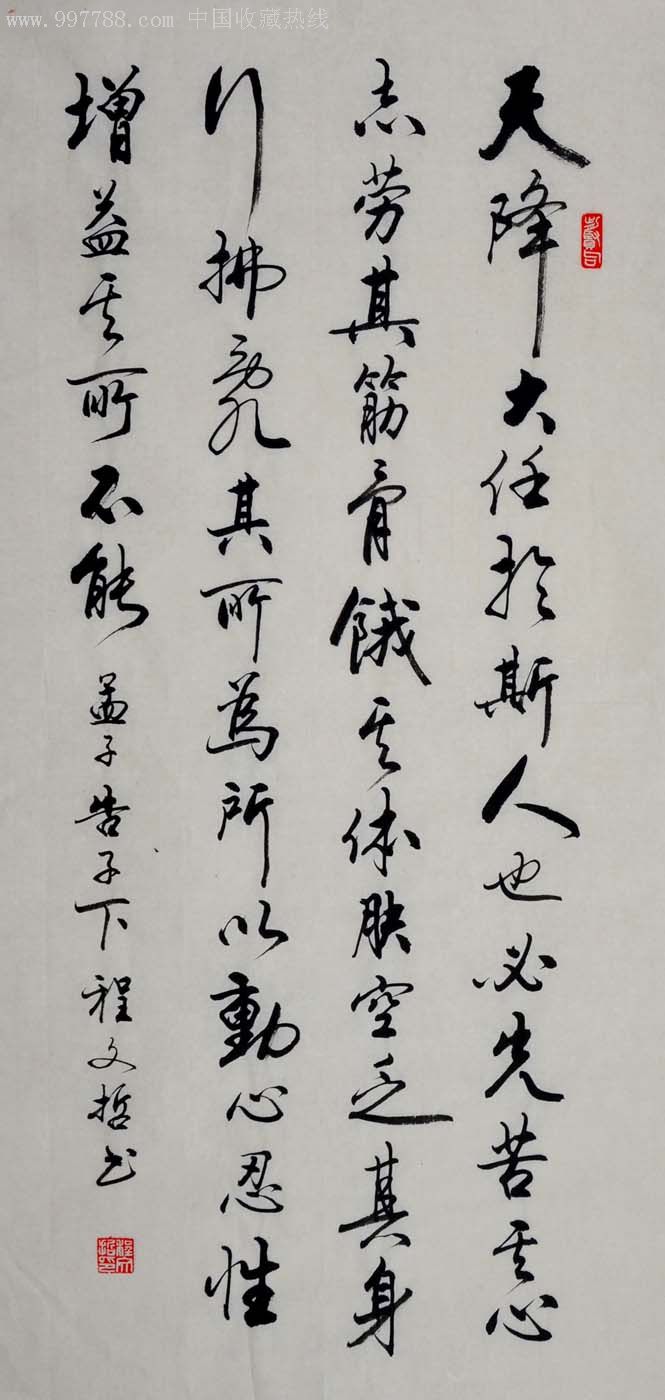 www.997788.com 中国收藏热线
天降大任於斯人也必先苦其心
志劳其筋骨餓其体肤空乏其身
行拂亂其所為所以動心忍性
增益其所不能 孟子告子下 程文哲书
程文哲印